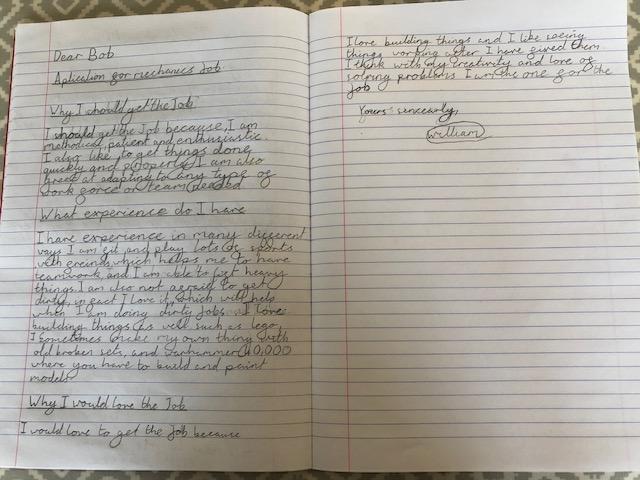 Dear Bob
Aplication for mechanics Job
Why I should get the Job
I should get the Job because, I am
methodical, patient and, enthusiastic.
I also like to get things done
quickly and properly. I am also
great at adapting to any type of
work force or team needed
What experience do I have
I have experience in many different
ways. I am fit and play lots of sports
with freinds which helps me to have
teamwork, and I am able to lift heavy
things. I am also not afraid to get
dirty, in fact I love it, which will help
when I am doing dirty jobs. I love
building things as well such as lego,
I sometimes make my own thing with
old broken sets, and Warhammer 40,000
where you have to build and paint
models.
Why I would love the Job
I would love to get the Job because
I love building things and I like seeing
things working after I have fixed them.
I think with my creativity and love of
solving problems I am the one for the
job.
Yours sincearly,
William